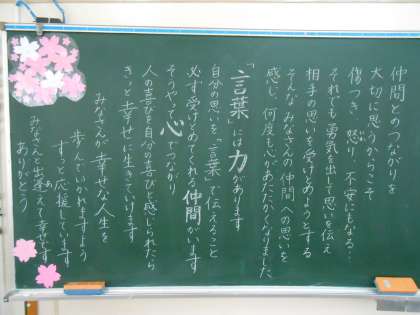 仲間とのつながりを
大切に思うからこそ
傷つき、怒り、不安にもなる…
それでも勇気を出して思いを伝え
相手の思いを受けとめようとする
そんなみなさんの仲間への思いを
感じ、何度も心があたたかくなりました
「言葉」には力があります
自分の思いを「言葉」で伝えること
必ず受けとめてくれる仲間がいます
そうやって心でつながり
人の喜びを自分の喜びと感じられたら
きっと幸せに生きていけます
みなさんが幸せな人生を
歩んでいかれますよう
ずっと応援しています
みなさんと出逢えて幸せです
ありがとう